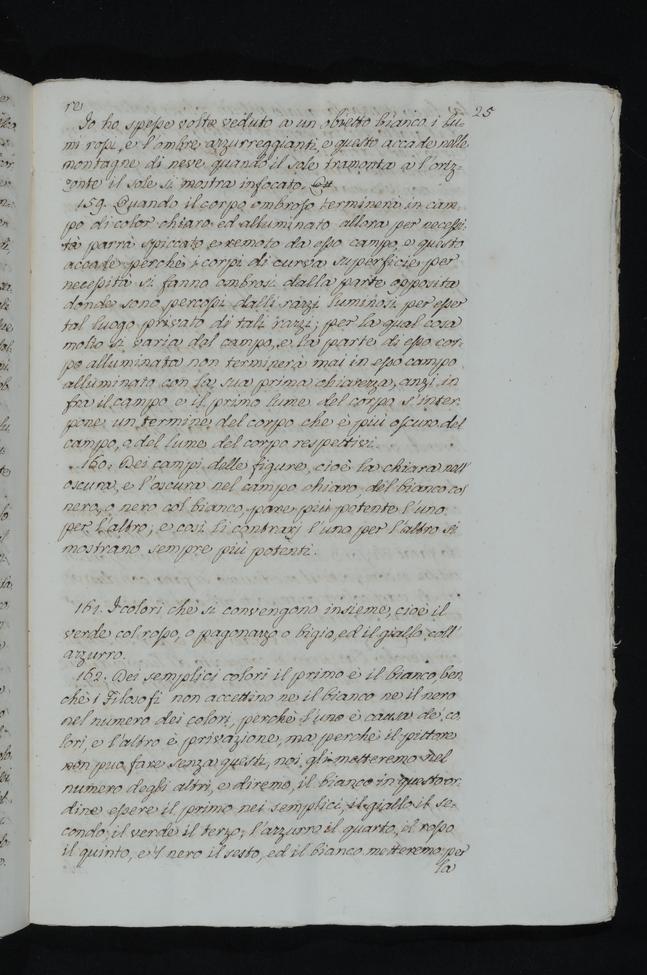 25
re
Io ho spesse volte veduto a un obietto bianco i lu-
mi rossi, e l'ombre azzurreggianti, e questo accade nelle
montagne di neve quando il sole tramonta e l'oriz-
zonte il sole si mostra infocato.
159. Quando il corpo ombroso terminerà in cam-
po di color chiaro, ed alluminato allora per necessi-
tà parrà spiccato e remoto da esso campo, e questo
accade perchè i corpi di curva superficie per
necessità si fanno ombrosi dalla parte opposita
donde sono percossi dalli razzi luminosi per esser
tal luogo privato di tali razzi; per la qual cosa
molto si varia dal campo, e la parte di esso cor-
po alluminata non terminerà mai in esso campo
alluminato con la sua prima chiarezza, anzi in
fra il campo e il primo lume del corpo s'inter-
pone un termine del corpo che è più oscuro del
campo, o del lume del corpo respettivi.
160. Dei campi delle figure, cioè la chiara nell'
oscura, e l'oscura nel campo chiaro, del bianco col
nero, o nero col bianco, pare più potente l'uno
per l'altro; e così li contrari l'uno per l'altro si
mostrano sempre più potenti.
161. I colori che si convengono insieme, cioè il
verde col rosso, o pagonazzo o bigio, ed il giallo coll'
azzurro.
162. Dei semplici colori il primo è il bianco, ben
chè i Filosofi non accettino nè il bianco nè il nero
nel numero dei colori, perchè l'uno è causa de' co-
lori, e l'altro è privazione, ma perchè il pittore
non può fare senza questi, noi gli metteremo nel
numero degli altri, e diremo, il bianco in questo or-
dine essere il primo nei semplici, il giallo il se-
condo, il verde il terzo, l'azzurro il quarto, il rosso
il quinto, e 'l nero il sesto, ed il bianco metteremo per
la